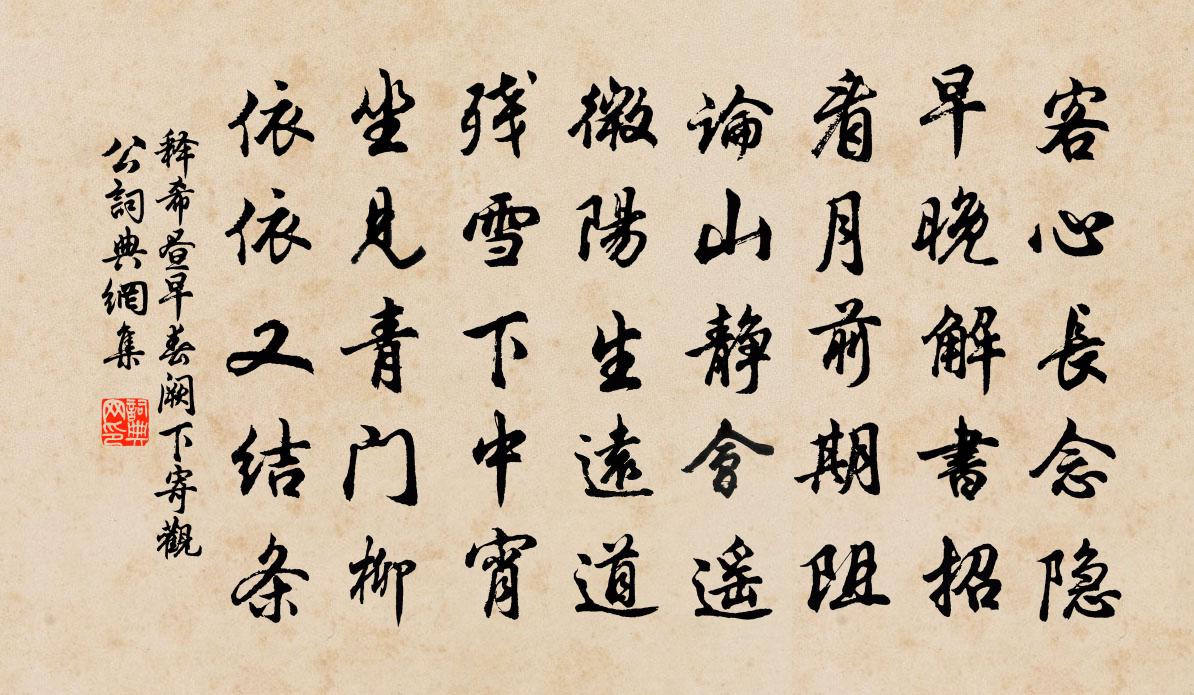 客心長念隐
早晚解書招
看月前期阻
論山静會遥
微陽生遠道
残雪下中宵
坐見青门柳
依依又结条
释希昼早春阙下寄觀
公詞典網集
詞典
网印